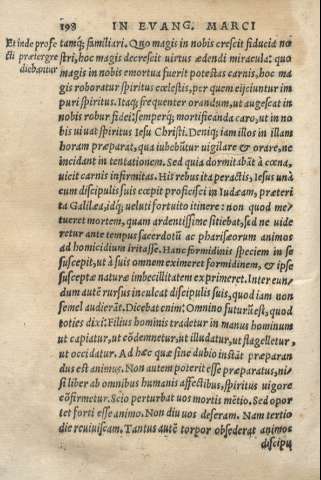 198 IN EVANG. MARCI
Et inde profe
cti prætergre
diebantur
tamq́; familiari. Quo magis in nobis crescit fiducia no
stri, hoc magis decrescit uirtus ædendi miracula: quo
magis in nobis emortua fuerit potestas carnis, hoc ma
gis roboratur spiritus cœlestis, per quem eijciuntur im
puri spiritus. Itaq; frequenter orandum, ut augescat in
nobis robur fidei: semperq́; mortificanda caro, ut in no
bis uiuat spiritus Iesu Christi. Deniq; iam illos in illam
horam præparat, qua iubebũtur uigilare & orare, ne
incidant in tentationem. Sed quia dormitabãt à cœna,
uicit carnis infirmitas. His rebus ita peractis, Iesus unà
cum discipulis suis cœpit proficisci in Iudæam, præteri
ta Galilæa, idq́; ueluti fortuito itinere: non quod me/
tueret mortem, quam ardentissime sitiebat, sed ne uide
retur ante tempus sacerdotũ ac pharisæorum animos
ad homicidium irritasse. Hanc formidinis speciem in se
suscepit, ut à suis omnem eximeret formidinem, & ipse
susceptæ naturæ imbecillitatem exprimeret. Inter eun/
dum autẽ rursus inculcat discipulis suis, quod iam non
semel audierãt. Dicebat enim: Omnino futurũ est, quod
toties dixi: Filius hominis tradetur in manus hominum
ut capiatur, ut cõdemnetur, ut illudatur, ut flagelletur,
ut occidatur. Ad hæc quæ sine dubio instãt præparan
dus est animus. Non autem poterit esse præparatus, ni/
si liber ab omnibus humanis affectibus, spiritus uigore
cõfirmetur. Scio perturbat uos mortis mẽtio. Sed opor
tet forti esse animo. Non diu uos deseram. Nam tertio
die reuiuiscam. Tantus autẽ torpor obsederat animos
discipu